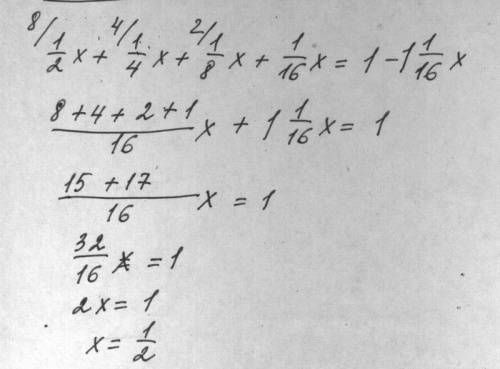 8/ 1/2 x + 4/ 1/4 x + 2/ 1/8 x + 1/16 x = 1 - 1 1/16 x
(8 + 4 + 2 + 1)/16 x + 1 1/16 x = 1
(15 + 17)/16 x = 1
32/16 x = 1
2x = 1
x = 1/2